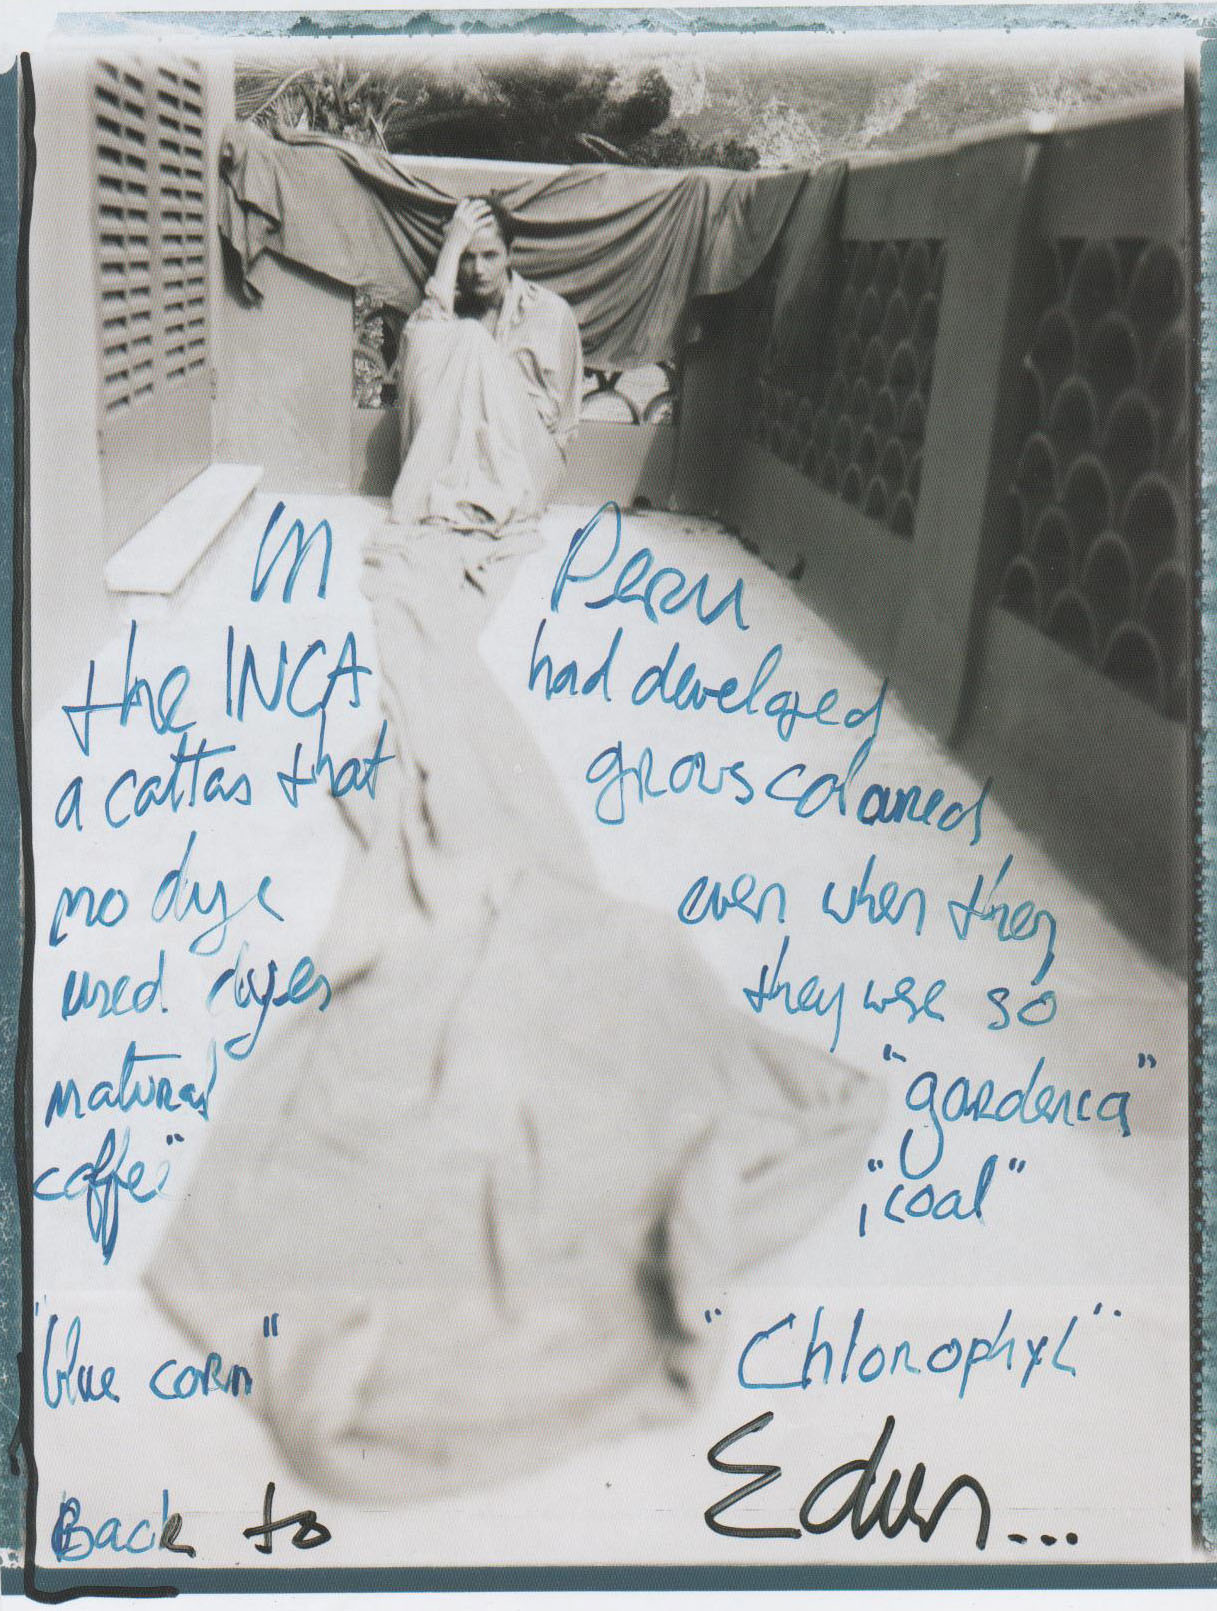 In Peru
the INCA had developed
a cotton that grows coloured
no dye even when they
used dyes they were so
natural "gardenia"
coffee" "coal"
"blue corn" "Chlorophyl"
Back to Edun...